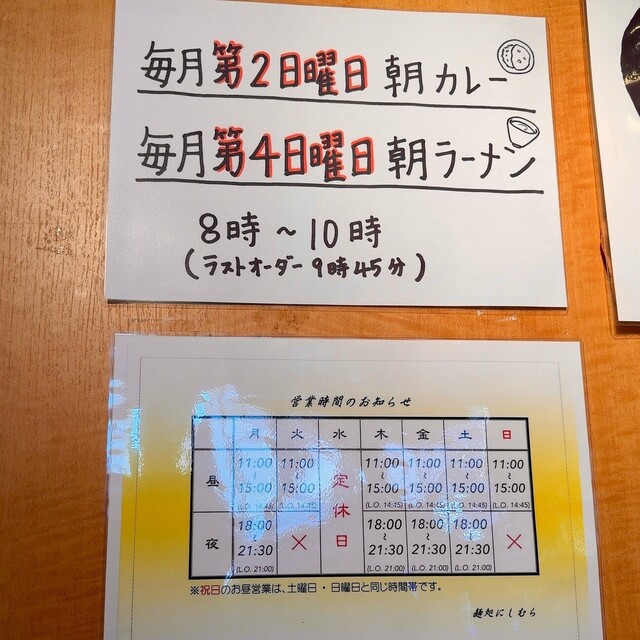 毎月第2日曜日 朝カレー
毎月第4日曜日 朝ラーメン
8時～10時
(ラストオーダー9時45分)
営業時間のお知らせ
月 火 水 木 金 土 日
昼 11:00～15:00 (L.O. 14:45) 11:00～15:00 (L.O. 14:45) 定休日 11:00～15:00 (L.O. 14:45) 11:00～15:00 (L.O. 14:45) 11:00～15:00 (L.O. 14:45) 11:00～15:00 (L.O. 14:45)
夜 18:00～21:30 (L.O. 21:00) × 18:00～21:30 (L.O. 21:00) 18:00～21:30 (L.O. 21:00) 18:00～21:30 (L.O. 21:00) ×
※祝日のお昼営業は、土曜日・日曜日と同じ時間帯です。
麺処にしむら